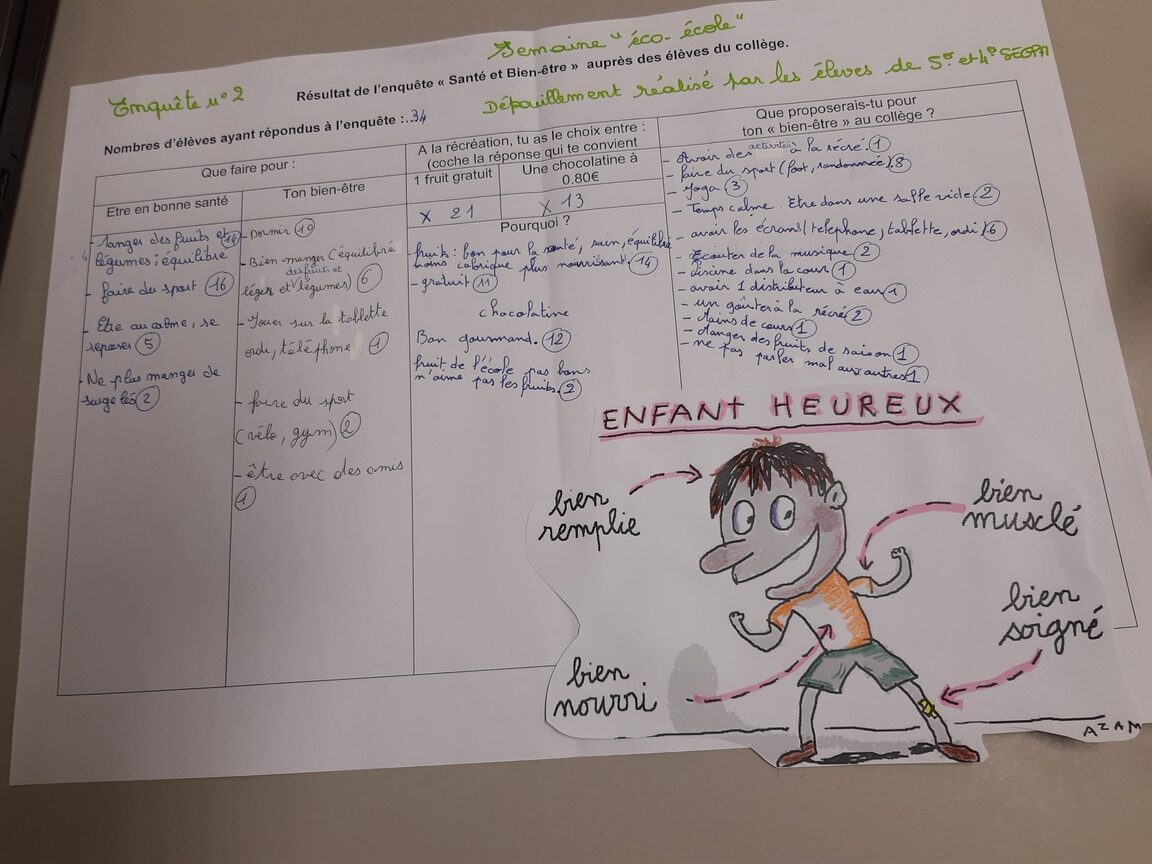 Semaine "éco-école"
Enquête n°2
Résultat de l'enquête « Santé et Bien-être » auprès des élèves du collège.
Dépouillement réalisé par les élèves de 5e et 4e SEGPA
Nombres d'élèves ayant répondus à l'enquête :..34
Que faire pour :
Etre en bonne santé
- Manger des fruits et 14
légumes; équilibré
- faire du sport 16
- Etre au calme, se
reposer 5
- Ne plus manger de
surgelés 2
Ton bien-être
- Dormir 10
- Bien manger (équilibré
des fruits et
léger et légumes) 6
- Jouer sur la tablette
ordi, téléphone 1
- faire du sport
(vélo, gym) 2
- être avec des amis
1
A la récréation, tu as le choix entre :
(coche la réponse qui te convient
1 fruit gratuit
Une chocolatine à
0.80€
X 21
X 13
Pourquoi ?
fruits : bon pour la santé, sain, équilibré
moins calorique plus nourrissant. 14
- gratuit 11
chocolatine
Bon gourmand. 12
fruit de l'école pas bons
n'aime pas les fruits. 2
Que proposerais-tu pour
ton « bien-être » au collège ?
- Avoir des activités à la récré. 1
- faire du sport (foot, randonnée) 8
- Yoga 3
- Temps calme. Etre dans une salle vide 2
- avoir les écrans (telephone, tablette, ordi) 6
- Ecouter de la musique 2
- piscine dans la cour 1
- avoir 1 distributeur à eau 1
- un goûter à la récré 2
- Moins de cours 1
- Manger des fruits de saison 1
- ne pas parler mal aux autres 1
ENFANT HEUREUX
bien
remplie
bien
musclé
bien
soigné
bien
nourri
AZAM